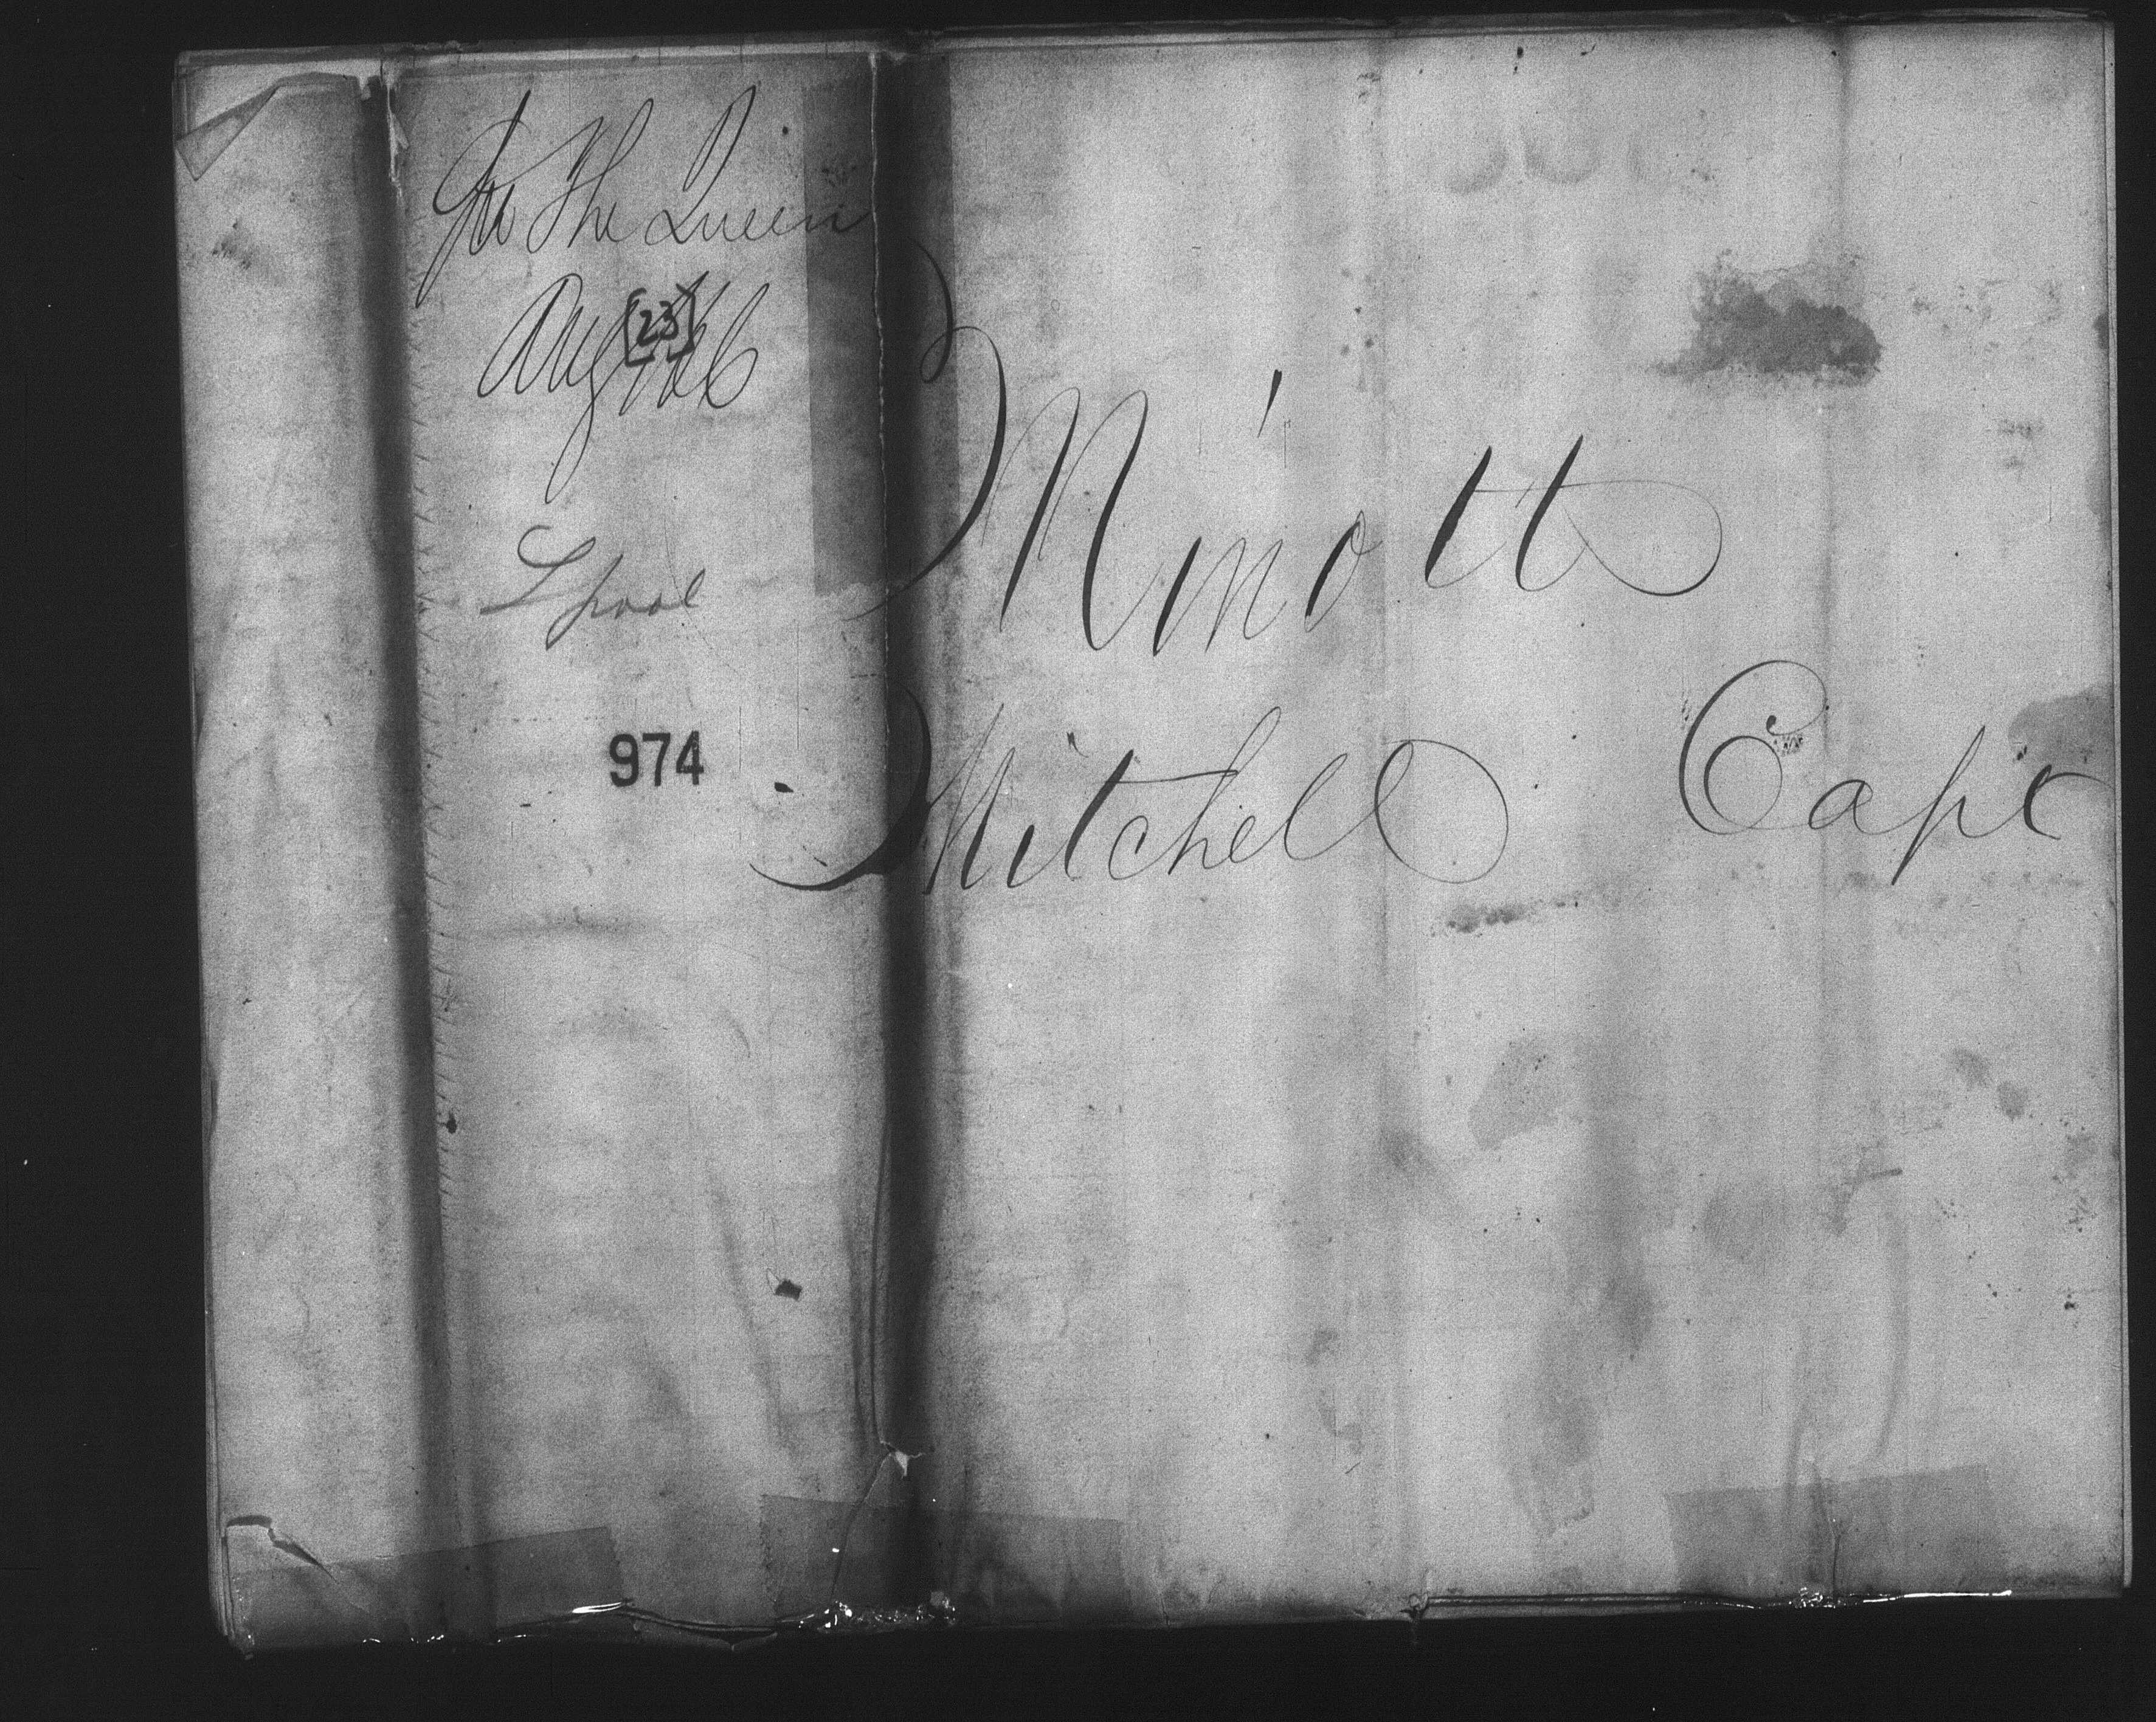 The Queen
Aug 166
[23]
Lpool
974
Minott
Mitchell Capt